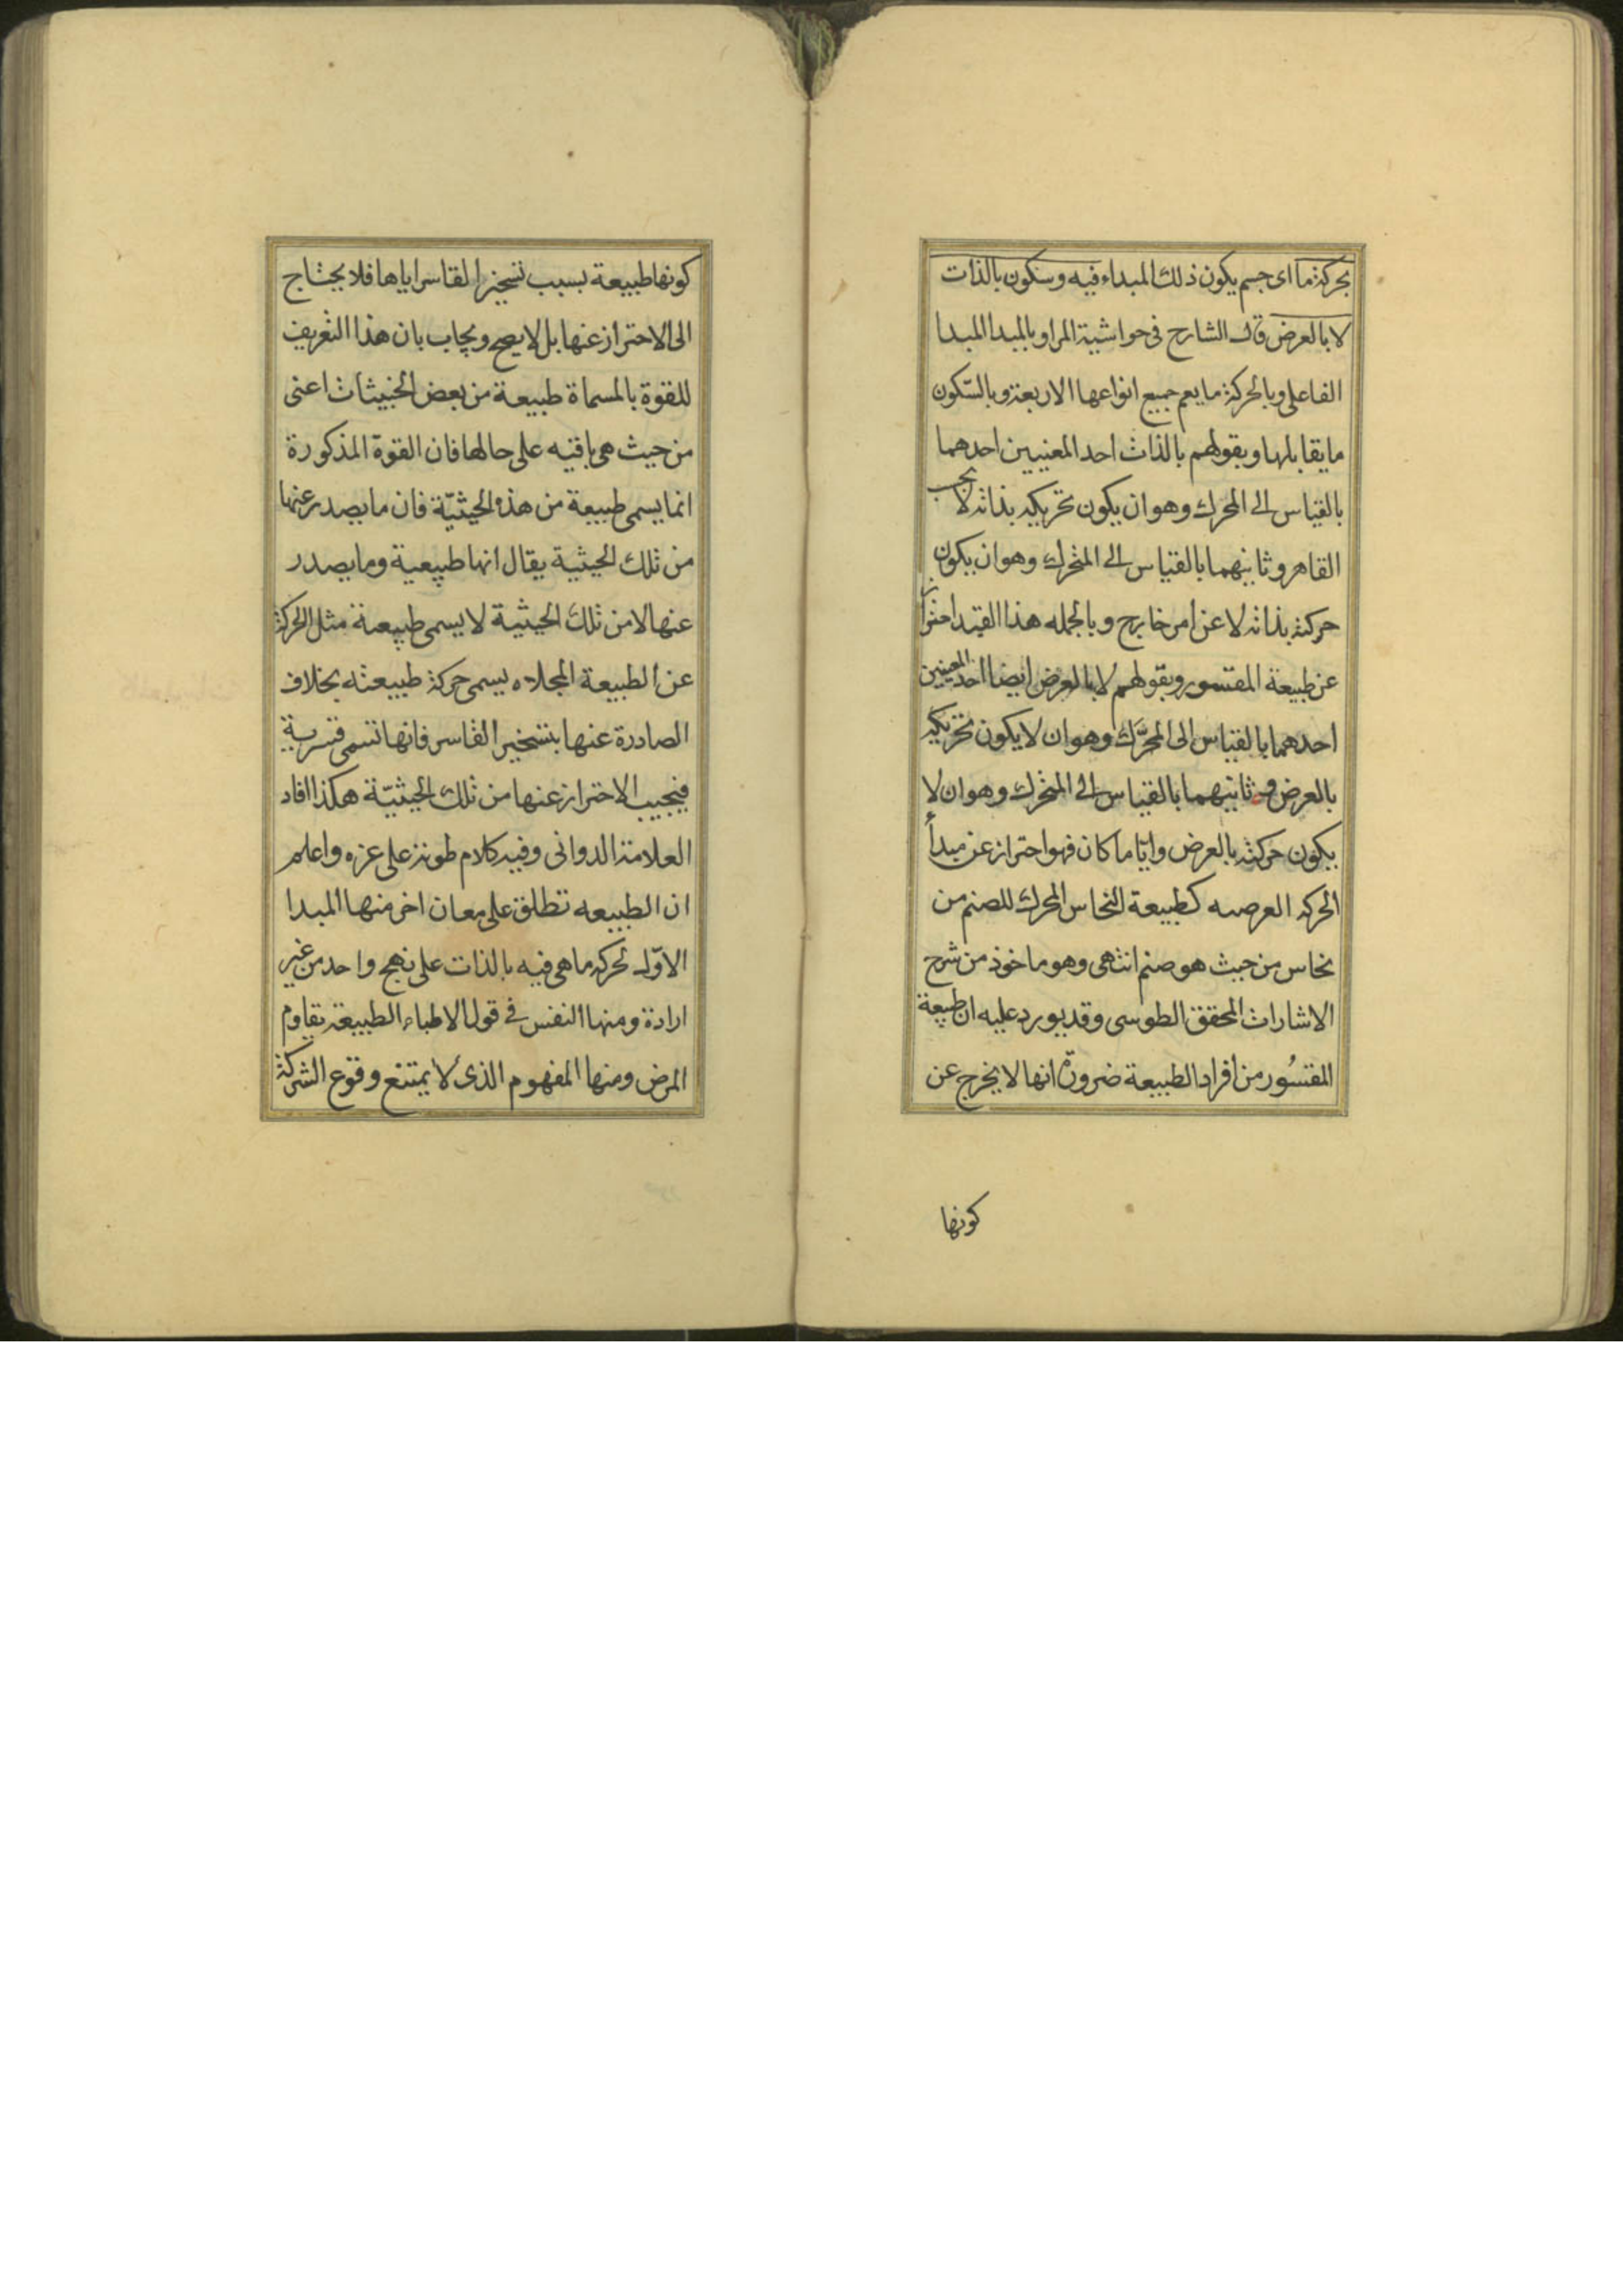 بحركة ما اى جسم يكون ذلك المبداء فيه وسكون بالذات
لا بالعرض قال الشارح فى حواشية المراد بالمبدا المبدا
الفاعلى وبالحركة ما يعم جميع انواعها الاربعة وبالسّكون
ما يقابلها وبقولهم بالذات احد المعنيين احدهما
بالقياس الى المحرك وهو ان يكون تحريكه بذاته لا بحسب
القاهر وثانيهما بالقياس الى المتحرك وهو ان يكون
حركته بذاته لا عن امر خارج وبالجمله هذا القيد احتراز
عن طبيعة المقسور وبقولهم لا بالعرض ايضا احد المعنيين
احدهما بالقياس الى المحرّك وهو ان لا يكون تحريكه
بالعرض وثانيهما بالقياس الى المتحرك وهو ان لا
يكون حركته بالعرض وايّا ما كان فهو احتراز عن مبدأ
الحركه العرصه كطبيعة النحاس المحرك للصنم من
نحاس من حيث هو صنم انتهى وهو ماخوذ من شرح
الاشارات المحقق الطوسى وقد يورد عليه ان طبيعة
المقسُور من افراد الطبيعة ضرورة انها لا يخرج عن
كونها
كونها طبيعة بسبب تسخير القاسر اياها فلا يحتاج
الى الاحتراز عنها بل لا يصح ويجاب بان هذا التعريف
للقوة بالمسماة طبيعة من بعض الحيثيات اعنى
من حيث هى باقيه على حالها فان القوّة المذكورة
انما يسمى طبيعة من هذه الحيثيّة فان ما يصدر عنها
من تلك الحيثية يقال انها طبيعية وما يصدر
عنها لا من تلك الحيثية لا يسمى طبيعة مثل الحركة
عن الطبيعة المجلاه يسمى حركة طبيعته بخلاف
الصادرة عنها بتسخير القاسر فانها تسمى قسرية
فيجيب الاحتراز عنها من تلك الحيثيّة هكذا افاد
العلامة الدوانى وفيه كلام طويته على عزه واعلم
ان الطبيعه تطلق على معان اخر منها المبدا
الاوّل لحركه ما هى فيه بالذات على نهج واحد من غير
ارادة ومنها النفس فى قول الاطباء الطبيعة يقاوم
المرض ومنها المفهوم الذى لا يمتنع وقوع الشركة